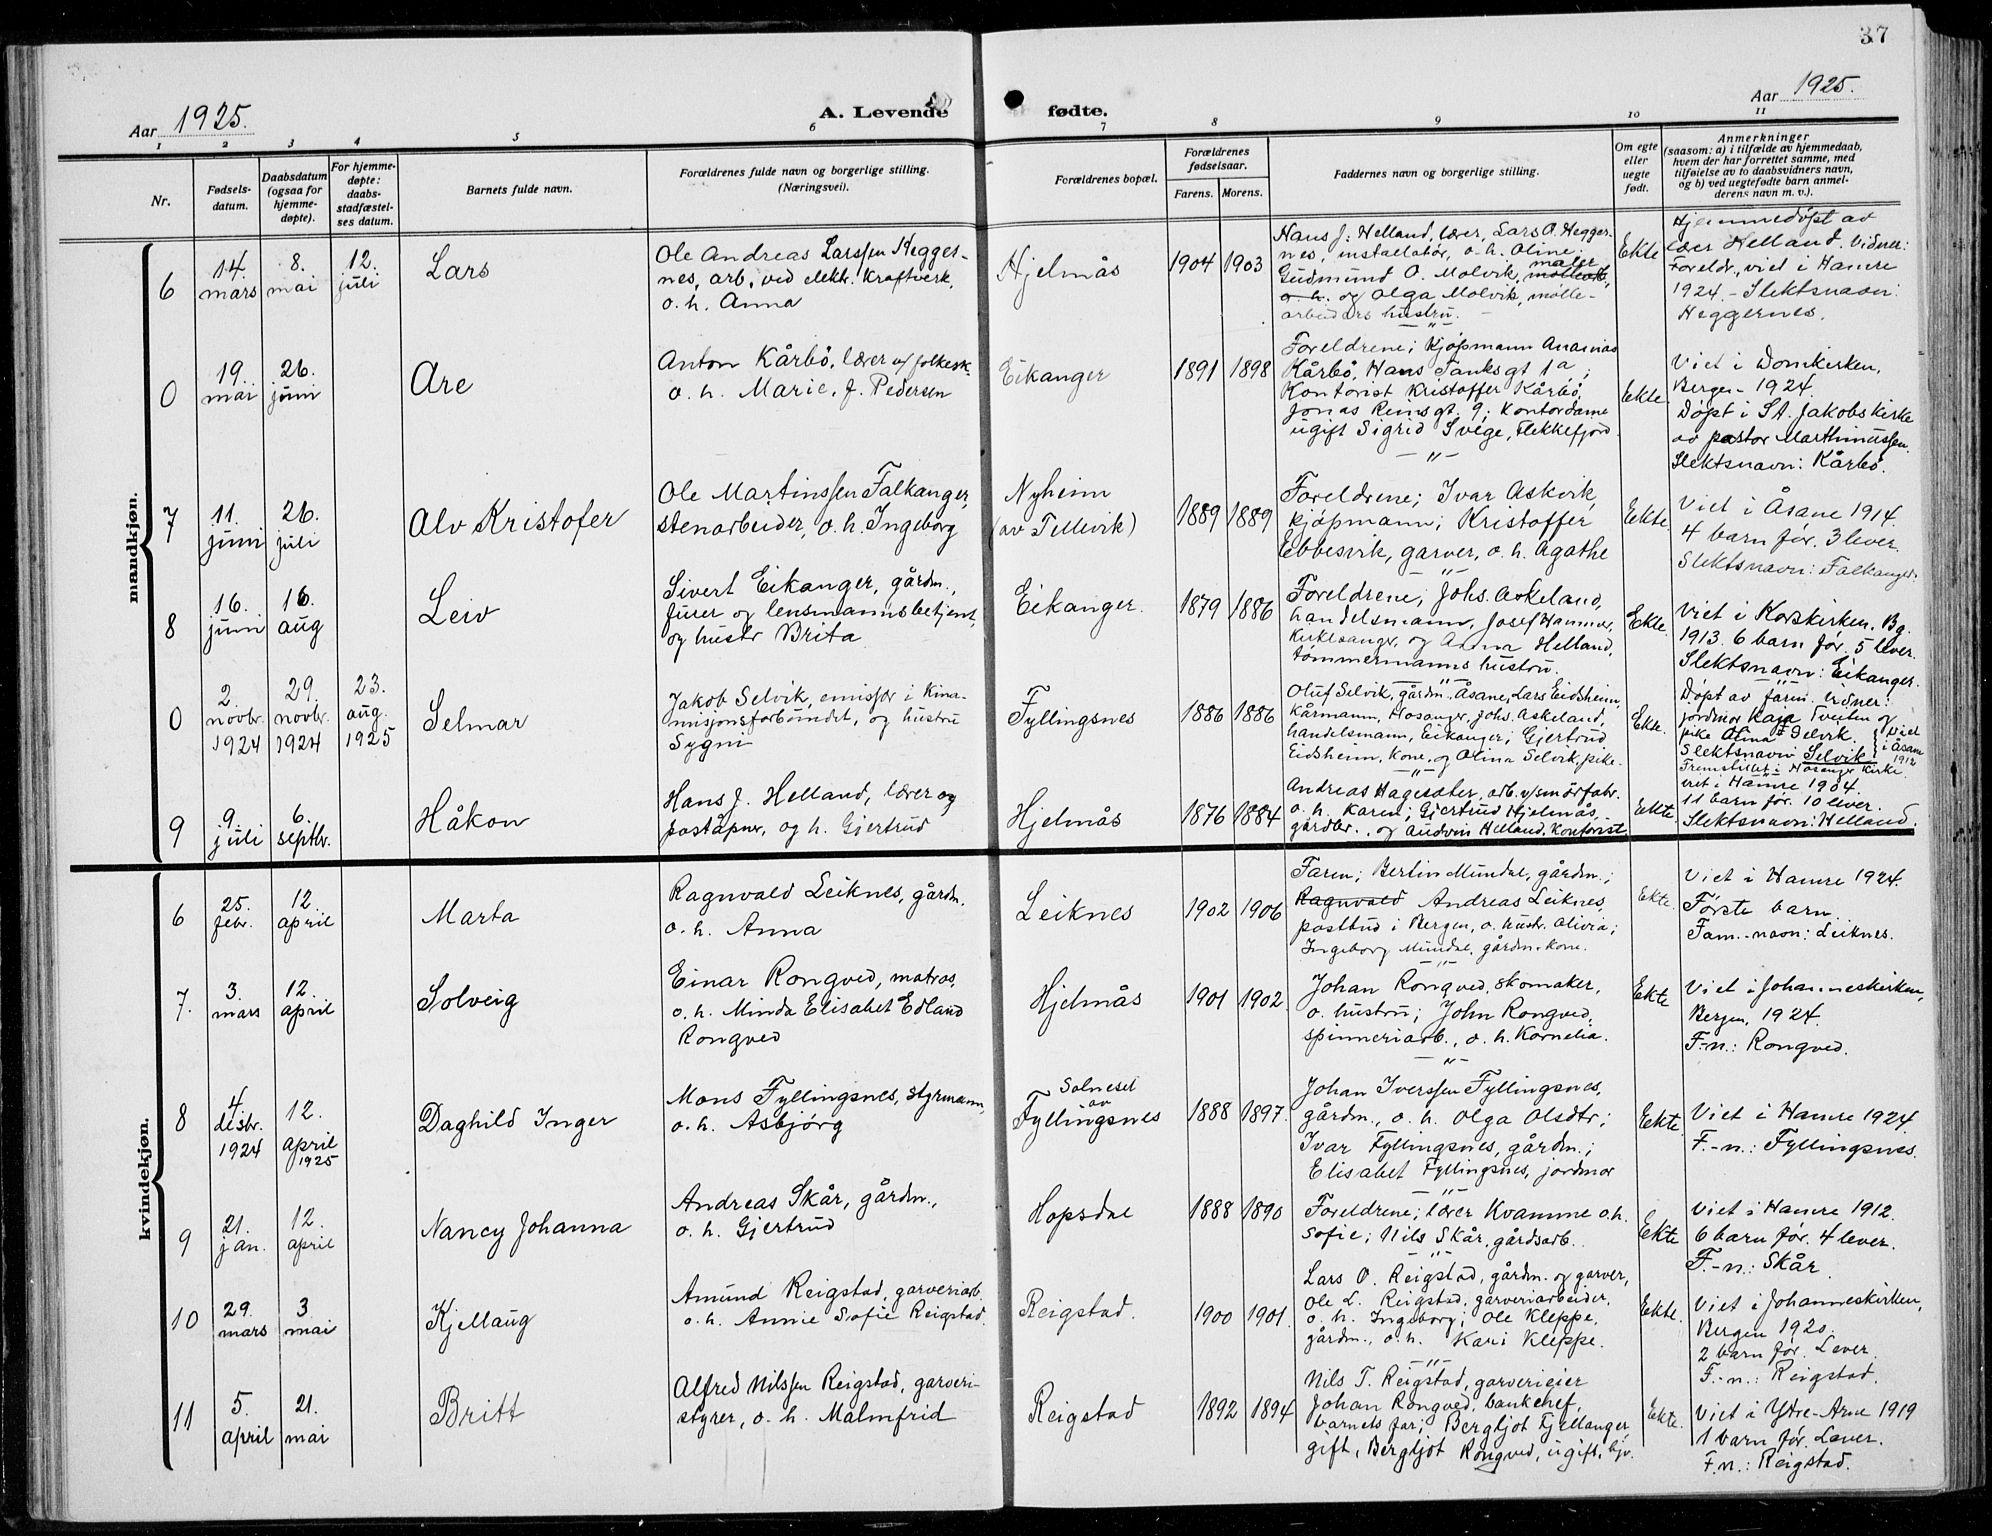 37
Aar 1925.
A. Levende fødte.
Aar 1925.
1 2 3 4 5 6 7 8 9 10 11
Nr.
Fødsels-
datum.
Daabsdatum
(ogsaa for
hjemme-
døpte).
For hjemme-
døpte:
daabs-
stadfæstel-
ses datum.
Barnets fulde navn.
Forældrenes fulde navn og borgerlige stilling.
(Næringsvei).
Forældrenes bopæl.
Forældrenes
fødselsaar.
Farens. Morens.
Faddernes navn og borgerlige stilling.
Om egte
eller
uegte
født.
Anmerkninger
(saasom: a) i tilfælde av hjemmedaab,
hvem der har forrettet samme, med
tilføielse av to daabsvidners navn,
og b) ved uegtefødte barn anmel-
derens navn m. v.).
mandkjøn.
6
14.
mars
8.
mai
12.
juli
Lars
Ole Andreas Larssen Hegges-
nes, arb. ved elektr. Kraftverk,
o. h. Anna
Hjelmås
1904 1903
Hans J. Helland, lærer, Lars O. Hegger-
nes, installatør, o. h. Oline;
Gudmund O. Molvik, maler
o. h. og Olga Molvik, mølle-
arbeiders hustru.
Ekte
Hjemmedøpt av
lær Helland. Vidner:
Foreldr., viet i Hamre
1924. - Slektsnavn:
Heggernes.
0
19.
mai
26.
juni
Are
Anton Kårbø, lærer v/ folkesk.
o. h. Marie, f. Pedersen
Eikanger
1891 1898
Foreldrene; kjøpmann Ananias
Kårbø, Hans Tanksgt 1a;
Kontorist Kristoffer Kårbø,
Jonas Reinsgt. 9; Kontordame
ugift Sigrid Svege, Flekkefjord
Ekte
Viet i Domkirken,
Bergen - 1924.
Døpt i St. Jakobs kirke
av pastor Marthinussen.
Slektsnavn: Kårbø.
7
11.
juni
26.
juli
Alv Kristofer
Ole Martinssen Falkanger,
stenarbeider, o. h. Ingeborg
Nyheim
(av Tellevik)
1889 1889
Foreldrene; Ivar Askvik,
kjøpmann; Kristoffer
Ebbesvik, garver, o. h. Agathe
Ekte.
Viet i Åsane 1914.
4 barn før. 3 lever.
Slektsnavn: Falkanger.
8
16.
juni
16.
aug
Leiv
Sivert Eikanger, gårdm.,
furer og lensmannsbetjent,
og hustr Brita
Eikanger.
1879 1886
Foreldrene; Johs. Askeland,
handelsmann, Josef Hammer,
Kirkesanger, og Anna Helland,
tømmermanns hustru.
Ekte.
Viet i Korskirken. Bg.
1913. 6 barn før. 5 lever.
Slektsnavn: Eikanger.
0
2.
novbr.
1924
29.
novbr.
1924
23.
aug.
1925
Selmar
Jakob Selvik, emissær i Kina-
misjonsforbundet, og hustru
Sygni
Fyllingsnes
1886 1886
Oluf Selvik, gårdm., Åsane, Lars Eidsheim,
Kårmann, Hosanger, Johs. Askeland,
handelsmann, Eikanger; Gjertrud
Eidsheim, Kone, og Olina Selvik, pike.
Ekte.
Døpt av faren. Vidner:
jordmor Kaja Tveiten og
pike Olina Selvik.
Slektsnavn Selvik
viet
i Åsane
1912
Fremstillet i Hosanger Kirke.
9
9.
juli
6.
septbr.
Håkon
Hans J. Helland, lærer og
poståpner, og h. Gjertrud
Hjelmås
1876 1884
Andreas Hagesæter, arb. v/smørfabr.
o. h. Karen; Gjertrud Hjelmås
gårdbr., og Audvin Helland, Kontorist
Ekte
viet i Hamre 1904.
11 barn før. 10 lever.
Slektsnavn: Helland.
kvindekjøn.
6
25.
febr.
12.
april
Marta
Ragnvald Leiknes, gårdm.
o. h. Anna
Leiknes
1902 1906
Faren; Bertin Mundal, gårdm.;
Ragnvald Andreas Leiknes,
postbud i Bergen, o. hustr. Olivia;
Ingeborg Mundal, gårdm.kone.
Ekte.
Viet i Hamre 1924.
Første barn.
Fam.-navn: Leiknes.
7.
3.
mars
12.
april
Solveig
Einar Rongved, matros,
o. h. Minda Elisabet Edland
Rongved
Hjelmås
1901 1902
Johan Rongved, skomaker,
o. hustru; John Rongved,
spinneriarb., o. h. Kornelia.
Ekte
Viet i Johanneskirken,
Bergen, 1924.
F-n.: Rongved.
8
4
desbr.
1924
12.
april
1925
Daghild Inger
Mons Fyllingsnes, styrmann,
o. h. Asbjørg
Solneset
av
Fyllingsnes
1888 1897.
Johan Iverssen Fyllingsnes,
gårdm., o. h. Olga Olsdtr;
Ivar Fyllingsnes, gårdm.;
Elisabet Fyllingsnes, jordmor
Ekte.
Viet i Hamre 1924.
F.-n.: Fyllingsnes.
9
21.
jan.
12.
april
Nancy Johanna
Andreas Skår, gårdm.,
o. h. Gjertrud
Hopsdal
1888 1890
Foreldrene; lærer Kvamme o.h.
Sofie; Nils Skår, gårdsarb.
Ekte
Viet i Hamre 1912.
6 barn før. 4 lever.
F.-n.: Skår.
10
29.
mars
3
mai
Kjellaug
Amund Reigstad, garveriarb.
o. h. Annie Sofie Reigstad.
Reigstad.
1900 1901.
Lars O. Reigstad, gårdm. og garver,
Ole L. Reigstad, garveriarbeider,
o. h. Ingeborg; Ole Kleppe,
gårdm., o. h. Kari Kleppe.
Ekte.
Viet i Johanneskirken,
Bergen 1920.
2 barn før. Lever.
F.-n.: Reigstad.
11
5.
april
21.
mai
Britt
Alfred Nilssen Reigstad, garveri-
styrer, o. h. Malmfrid
Reigstad
1892 1894
Nils T. Reigstad, garverieier
Johan Rongved, bankchef,
barnets far; Bergljot Fjellanger
gift, Bergljot Rongved, ugift, hjv.
Ekte.
Viet i Ytre-Arne 1919
1 barn før. Lever.
F.n.: Reigstad.